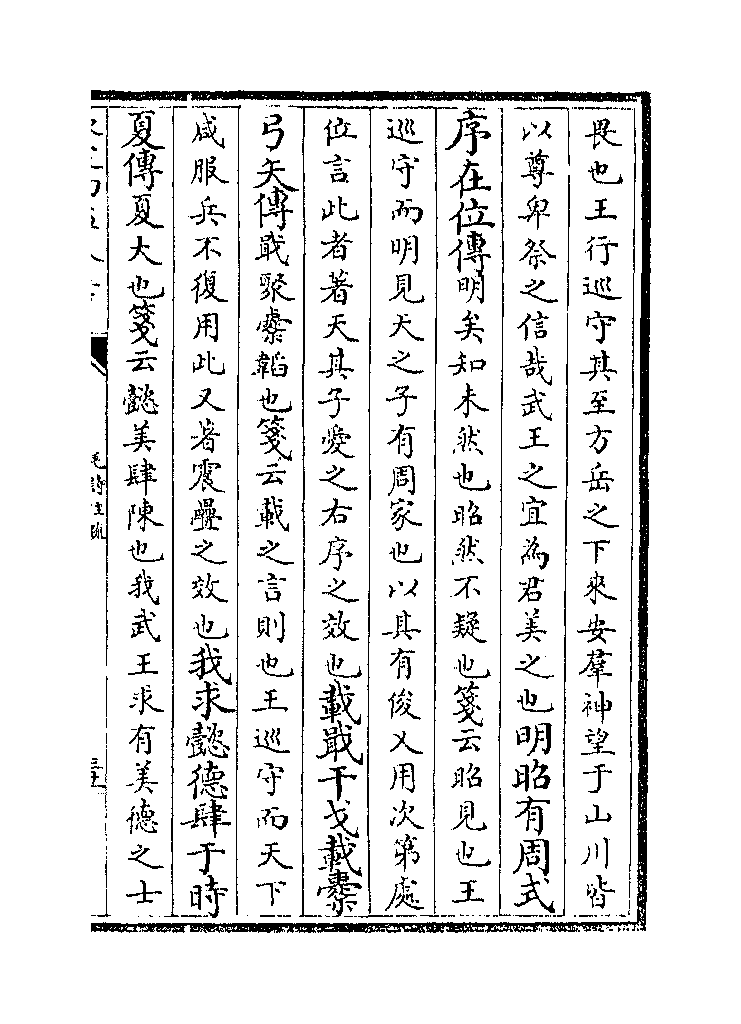 畏也王行巡守其至方岳之下來安羣神望于山川皆
以尊卑祭之信哉武王之宜為君美之也明昭有周式
序在位傳明矣知未然也昭然不疑也箋云昭見也王
巡守而明見天之子有周家也以其有俊乂用次第處
位言此者著天其子愛之右序之效也載戢干戈載櫜
弓矢傳戢聚櫜韜也箋云載之言則也王巡守而天下
咸服兵不復用此又著震疊之效也我求懿德肆于時
夏傳夏大也箋云懿美肆陳也我武王求有美德之士
毛詩注疏